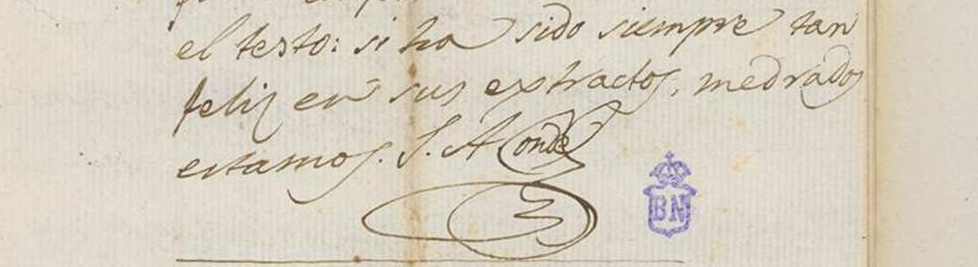 el testo: si ha sido siempre tan
feliz en sus extractos, medrados
estamos. J. A Conde
BN